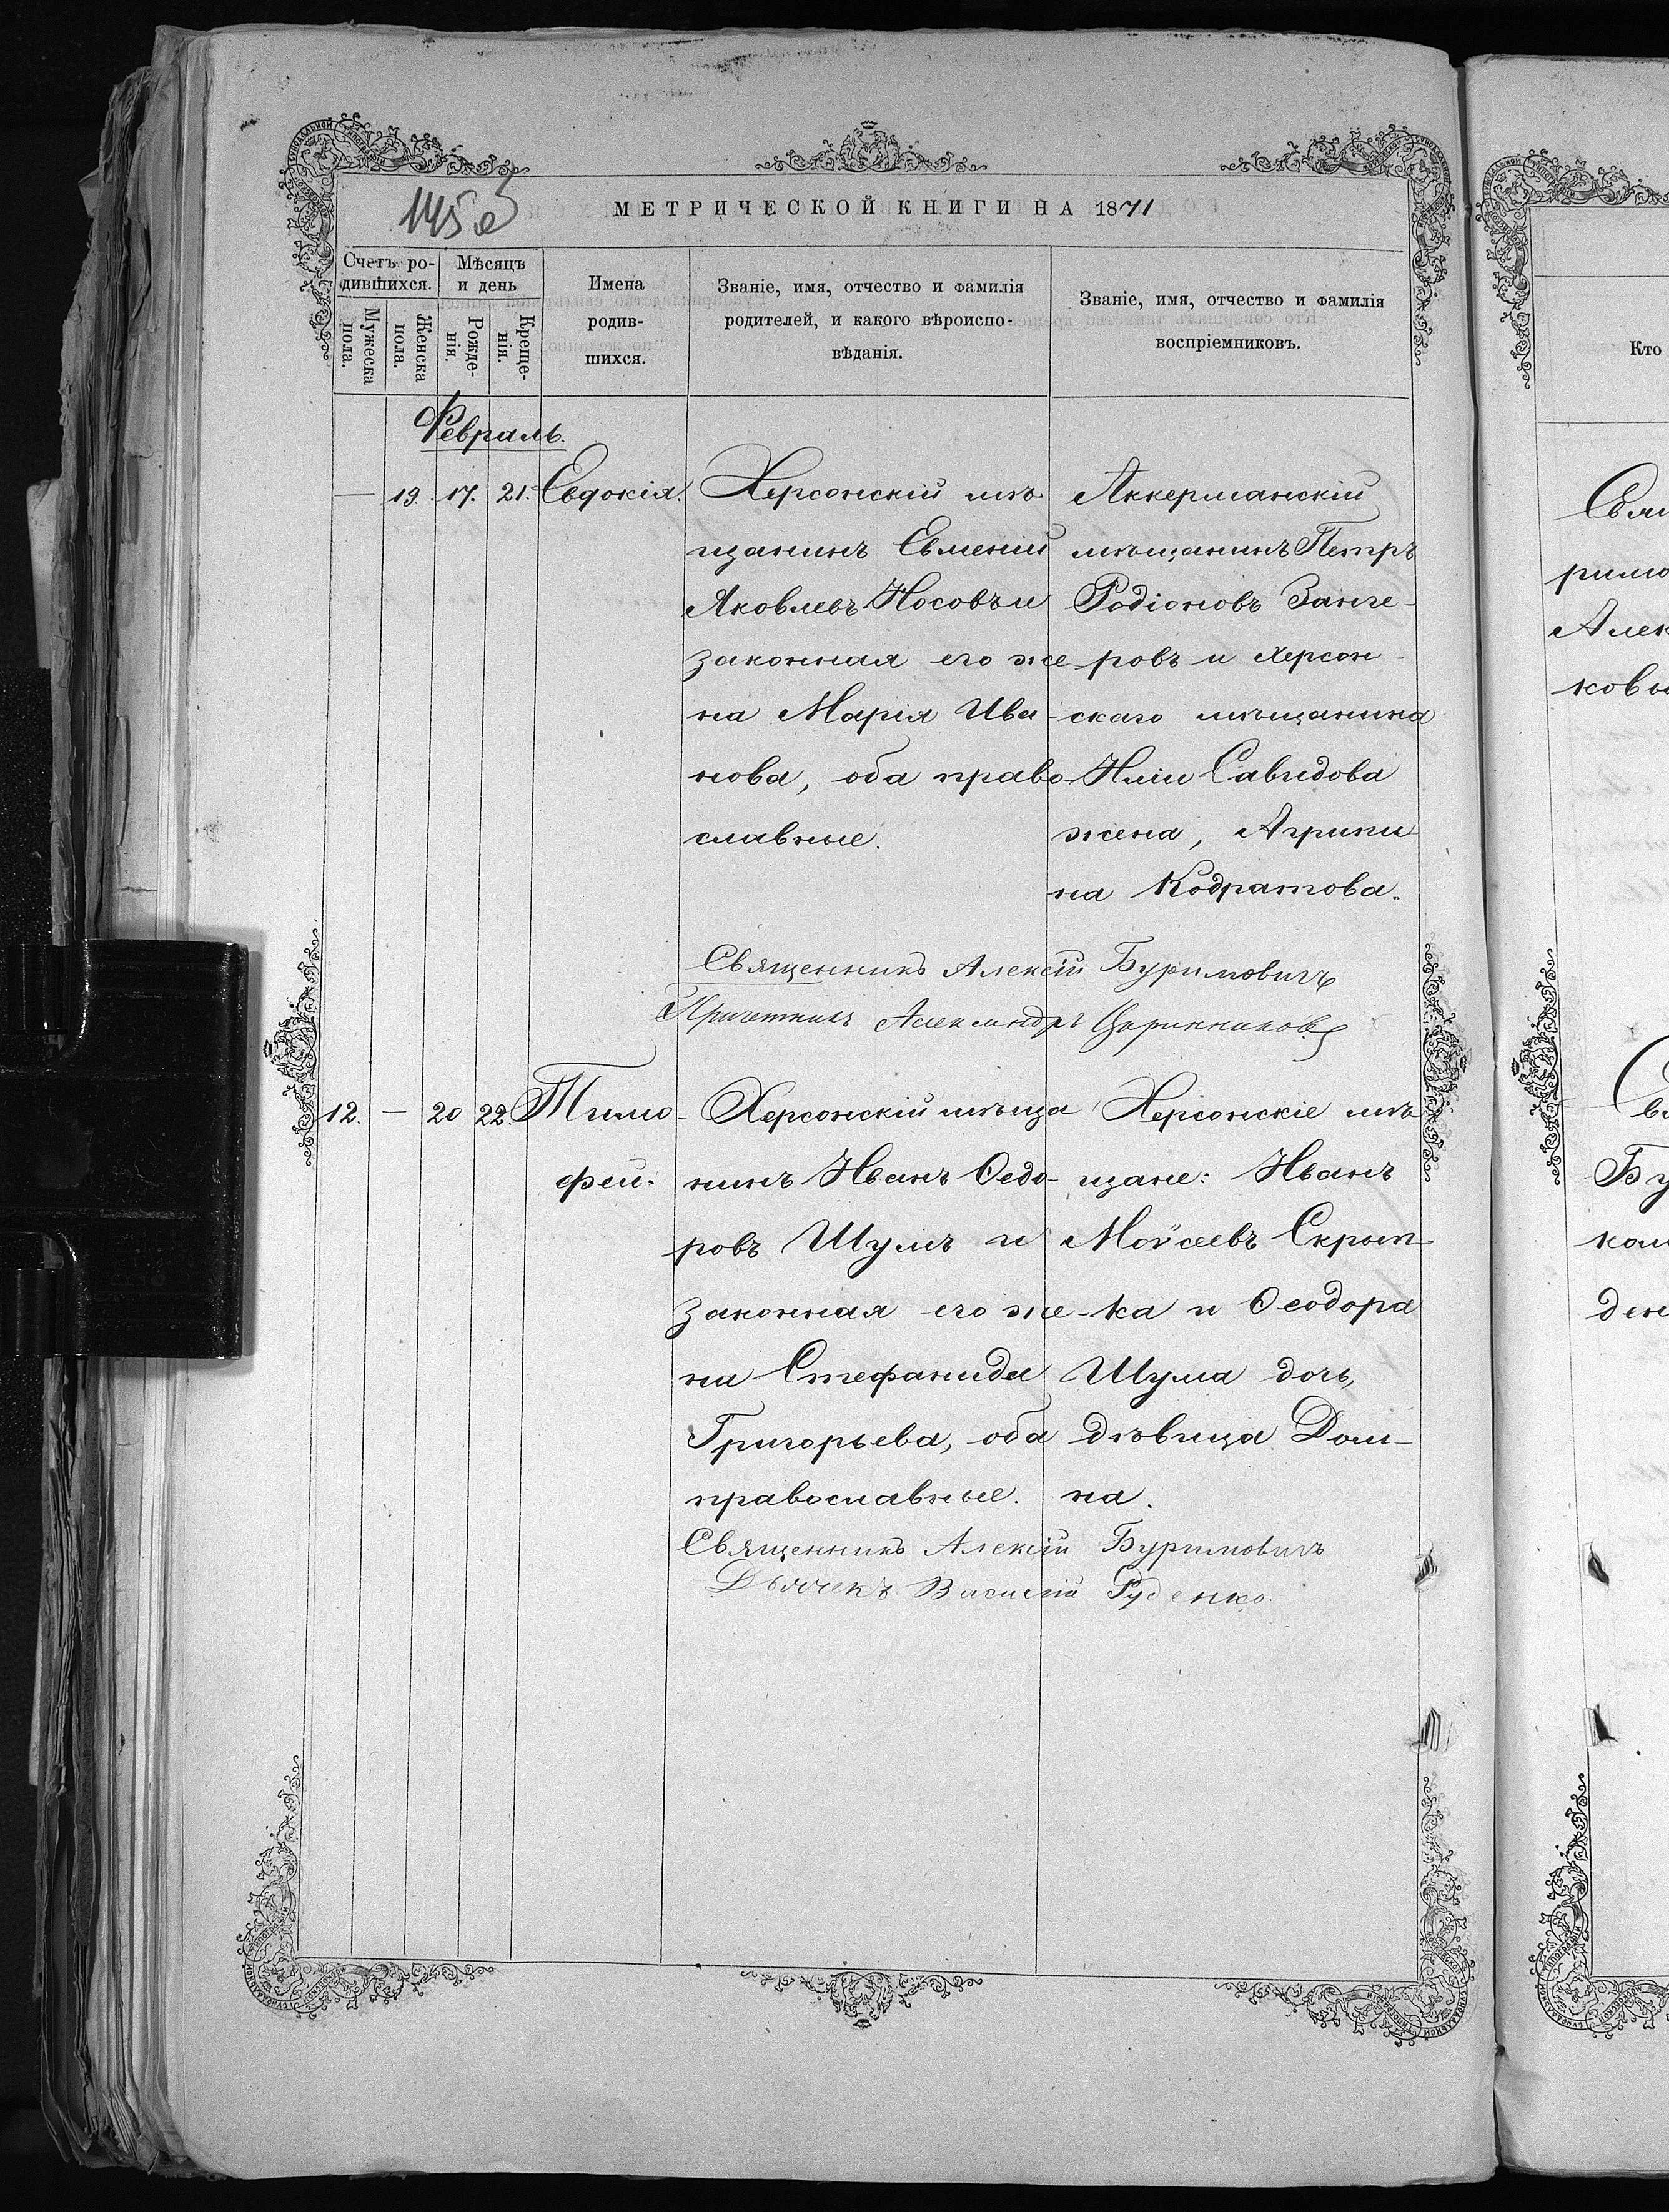 МЕТРИЧЕСКОЙ КНИГИ НА 1871
Счетъ ро-
дившихся.
Мужеска
пола.
Женска
пола.
Мѣсяцъ
и день
Рожде-
нія.
Креще-
нія.
Имена
родив-
шихся.
Званіе, имя, отчество и фамилія
родителей, и какого вѣроиспо-
вѣданія.
Званіе, имя, отчество и фамилія
воспріемниковъ.
Февраль.
— 19. 17. 21. Евдокія.
Херсонскій мѣ
щанинъ Евменій
Яковлевъ Носовъ и
законная его же
на Марія Ива-
нова, оба право
славные.
Аккерманскій
мѣщанинъ Петръ
Родіоновъ Занге-
ровъ и Херсон-
скаго мѣщанина
Иліи Савидова
жена, Агрипи
на Кодратова.
Священникъ Алексій Буримовичъ
Причетникъ Александръ
12. — 20 22. Тимо-
фей.
Херсонскій мѣща
нинъ Иванъ Ѳедо-
ровъ Шумъ и
законная его же-
на Стефанида
Григорьева, оба
православные.
Херсонскіе мѣ
щане: Иванъ
Моѵсеевъ Скрып-
ка и Ѳеодора
Шума дочь,
дѣвица Дом-
на.
Священникъ Алексій Буримовичъ
Дьячекъ Василій Руденко.
Кто